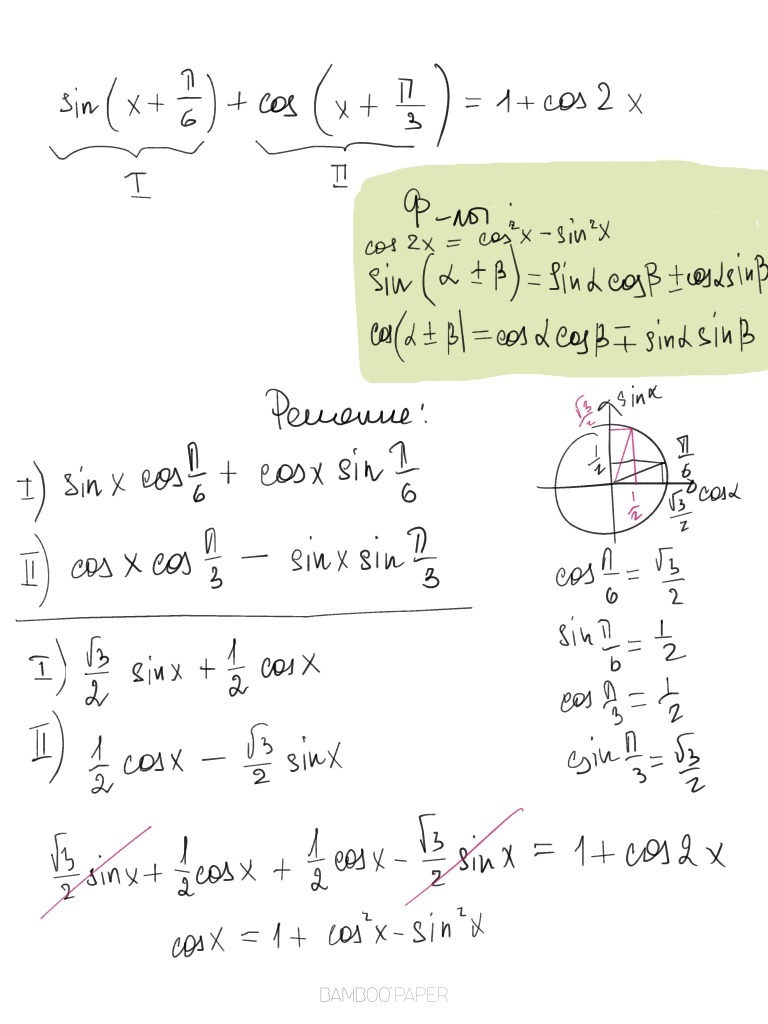 sin(x + π/6) + cos(x + π/3) = 1 + cos 2x
I II
Ф-лы:
cos 2x = cos²x - sin²x
sin(α ± β) = sinα cosβ ± cosα sinβ
cos(α ± β) = cosα cosβ ∓ sinα sinβ
Решение:
I) sin x cos π/6 + cos x sin π/6
II) cos x cos π/3 - sin x sin π/3
I) √3/2 sin x + 1/2 cos x
II) 1/2 cos x - √3/2 sin x
sinα
√3/2
1/2
π/6
cosα
1/2
√3/2
cos π/6 = √3/2
sin π/6 = 1/2
cos π/3 = 1/2
sin π/3 = √3/2
√3/2 sin x + 1/2 cos x + 1/2 cos x - √3/2 sin x = 1 + cos 2x
cos x = 1 + cos²x - sin²x
BAMBOO PAPER